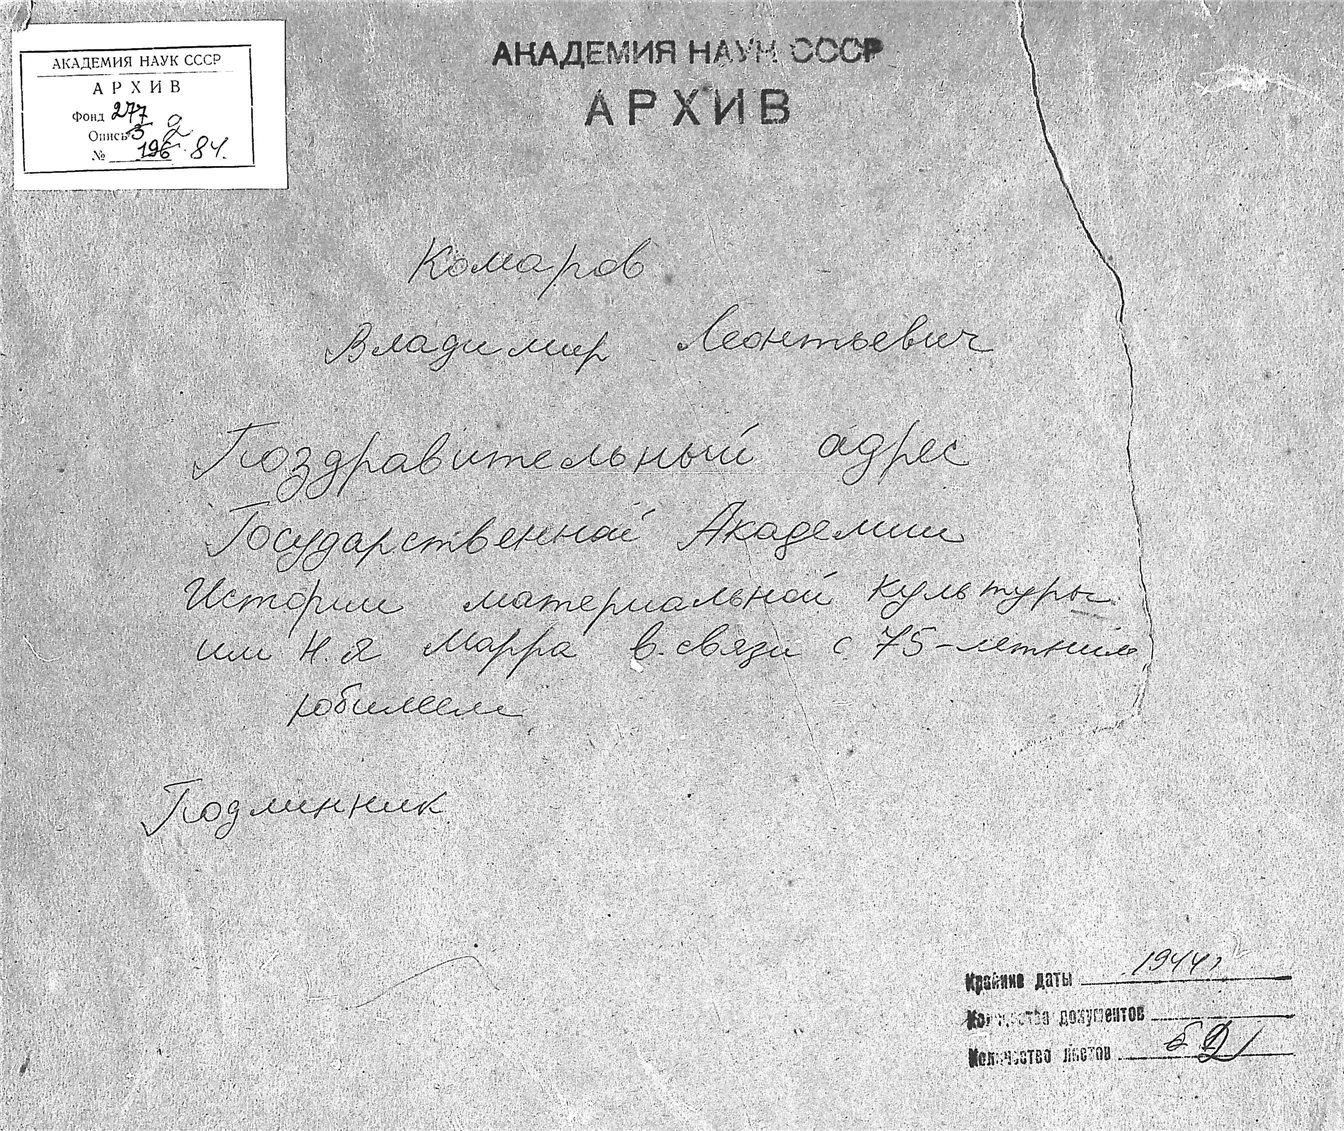 АКАДЕМИЯ НАУК СССР
АРХИВ
Фонд 277
Опись 3
№ 196 84.
АКАДЕМИЯ НАУК СССР
АРХИВ
Комаров
Владимир Леонтьевич
Поздравительный адрес
Государственной Академии
Истории материальной культуры
им Н. Я Марра в связи с 75-летним
юбилеем
Подлинник
Крайние даты 1944 г
Количество документов
Количество листов